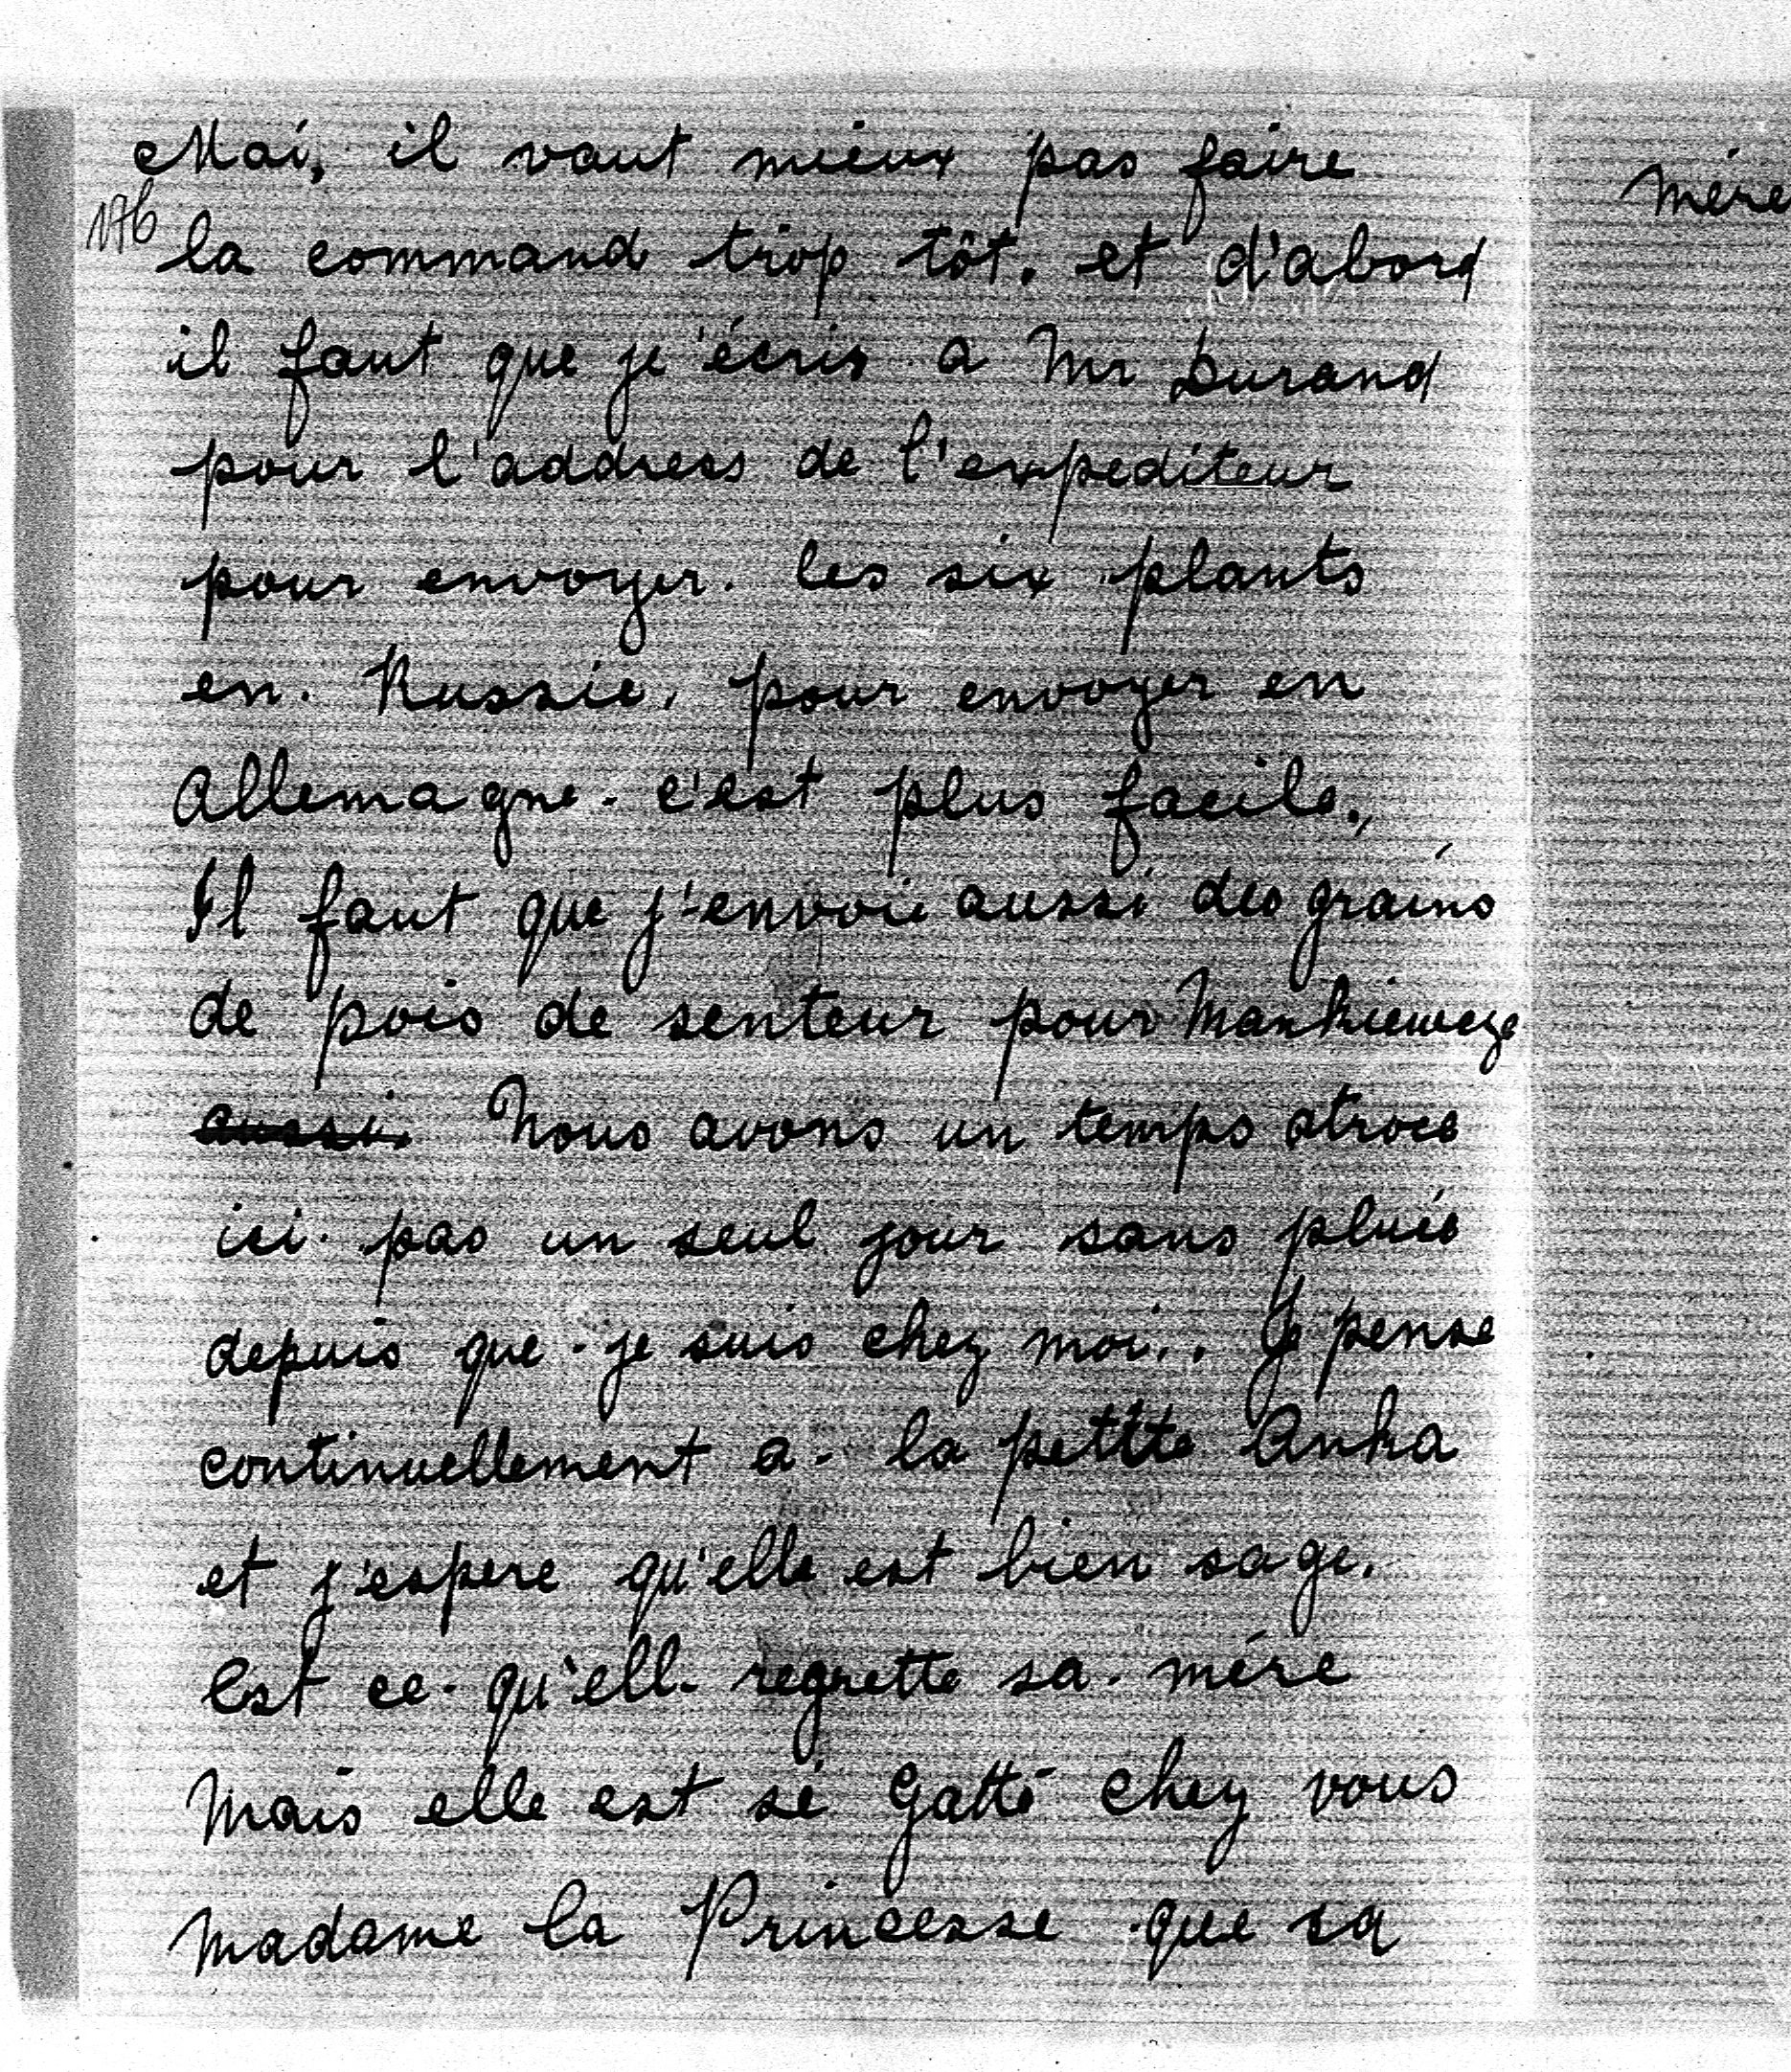 Mai, il vaut mieux pas faire
176
la command trop tôt. et d'abord
il faut que je'écris a Mr Durand
pour l'address de l'expediteur
pour envoyer. les six plants
en. Russie, pour envoyer en
Allemagne. c'est plus facile.,
Il faut que j'envoie aussi des grains
de pois de senteur pour
aussi. Nous avons un temps atroce
ici. pas un seul jour sans pluie
depuis que. je suis chez moi.. Je pense
continuellement a. la petite Anka
et j'espere qu'elle est bien sage.
Est ce. qu'ell. regrette sa. mére
Mais elle est si Gatté chez vous
Madame la Princesse que sa
mére